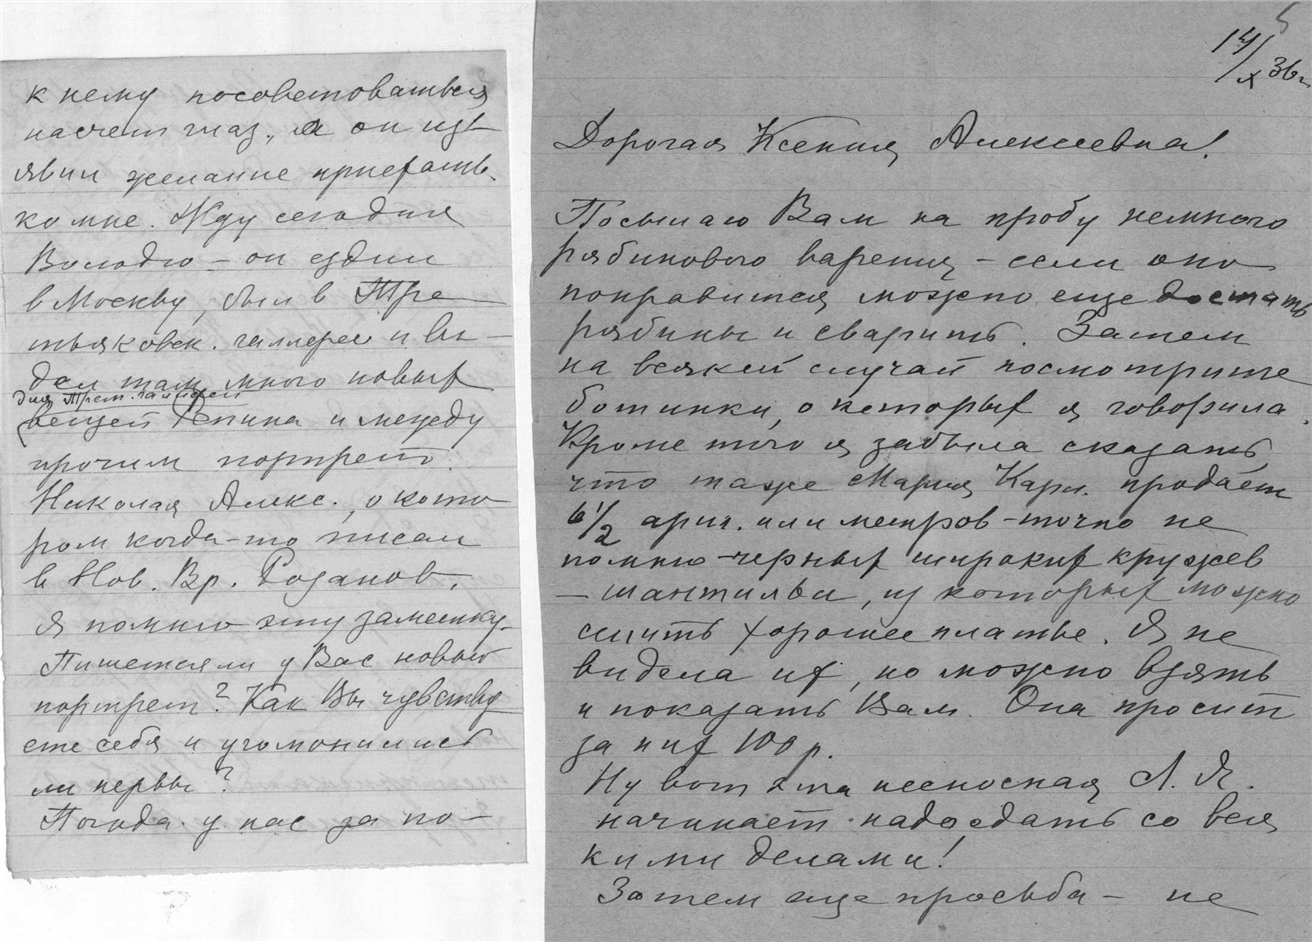 к нему посоветоваться
насчет глаз, а он изъ-
явил желание приехать
ко мне. Жду сегодня
Володю – он ездил
в Москву, был в Тре-
тьяковск. галлерее и ви-
дел там много новых
для Трет. галлереи
вещей Репина и между
прочим портрет
Николая Алекс., о кото-
ром когда-то писал
в Нов. Вр. Розанов.
Я помню эту заметку.
Пишется ли у Вас новый
портрет? Как Вы чувству
ете себя и угомонились
ли нервы?
Погода у нас за по-
5
14/X 36 г.
Дорогая Ксения Алексеевна!
Посылаю Вам на пробу немного
рябинового варения – если оно
понравится можно еще достать
рябины и сварить. Затем
на всякий случай посмотрите
ботинки, о которых я говорила.
Кроме того я забыла сказать,
что таже Мария Карл. продает
6 1/2 арш. или метров – точно не
помню – черных широких кружев
– шантильи, из которых можно
сшить хорошее платье. Я не
видела их, но можно взять
и показать Вам. Она просит
за них 100 р.
Ну вот эта несносная Л. Я.
начинает надоедать со вся
кими делами!
Затем еще просьба – не